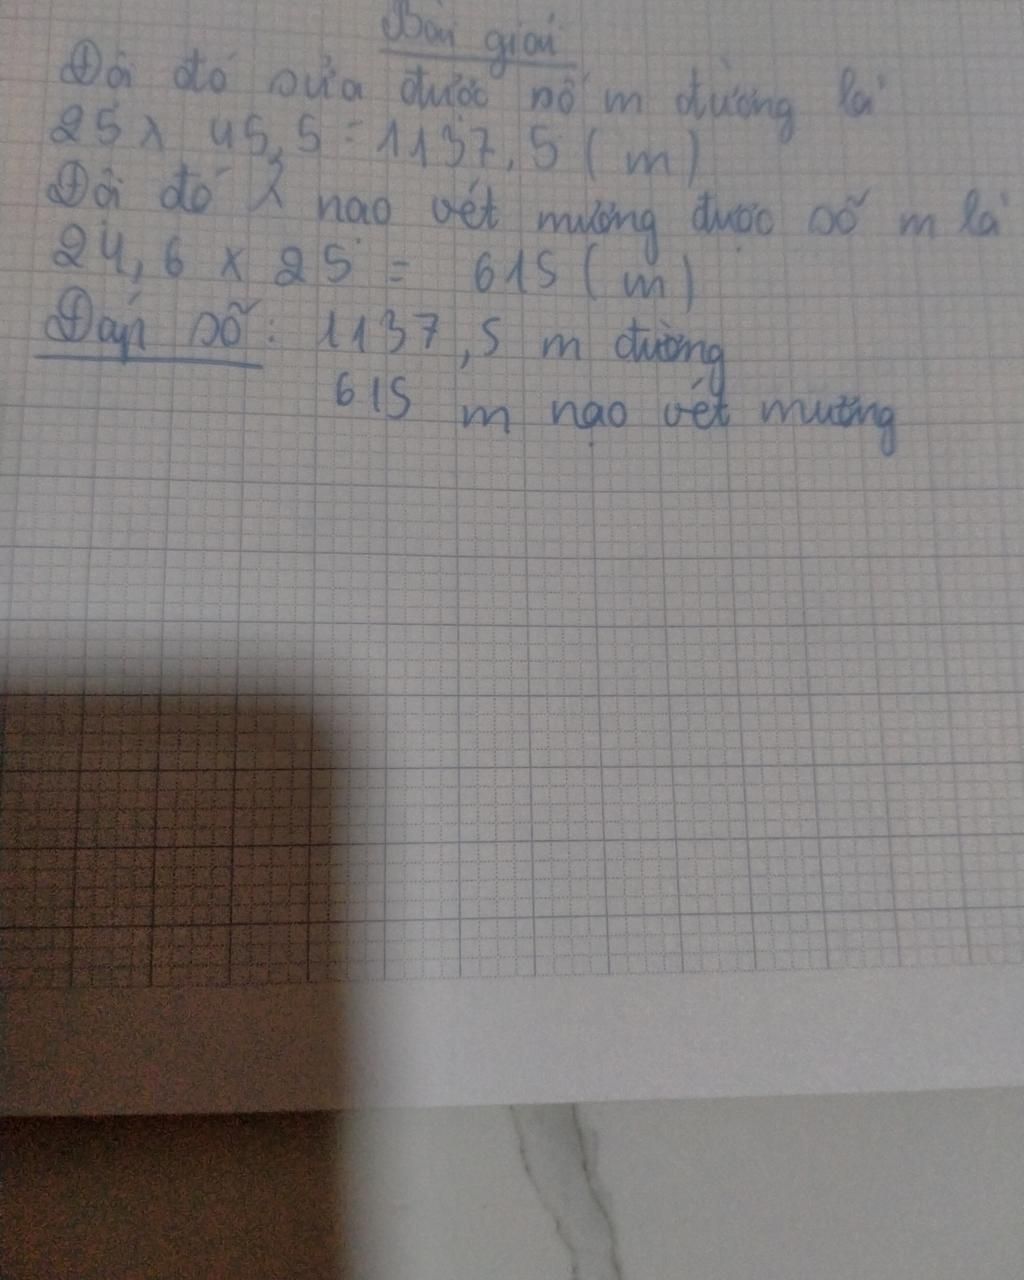 Bài giải
Đội đó sửa được số m đường là
25 x 45,5 = 1137,5 (m)
Đội đó nạo vét mương được số m là
24,6 x 25 = 615 (m)
Đáp số: 1137,5 m đường
615 m nạo vét mương